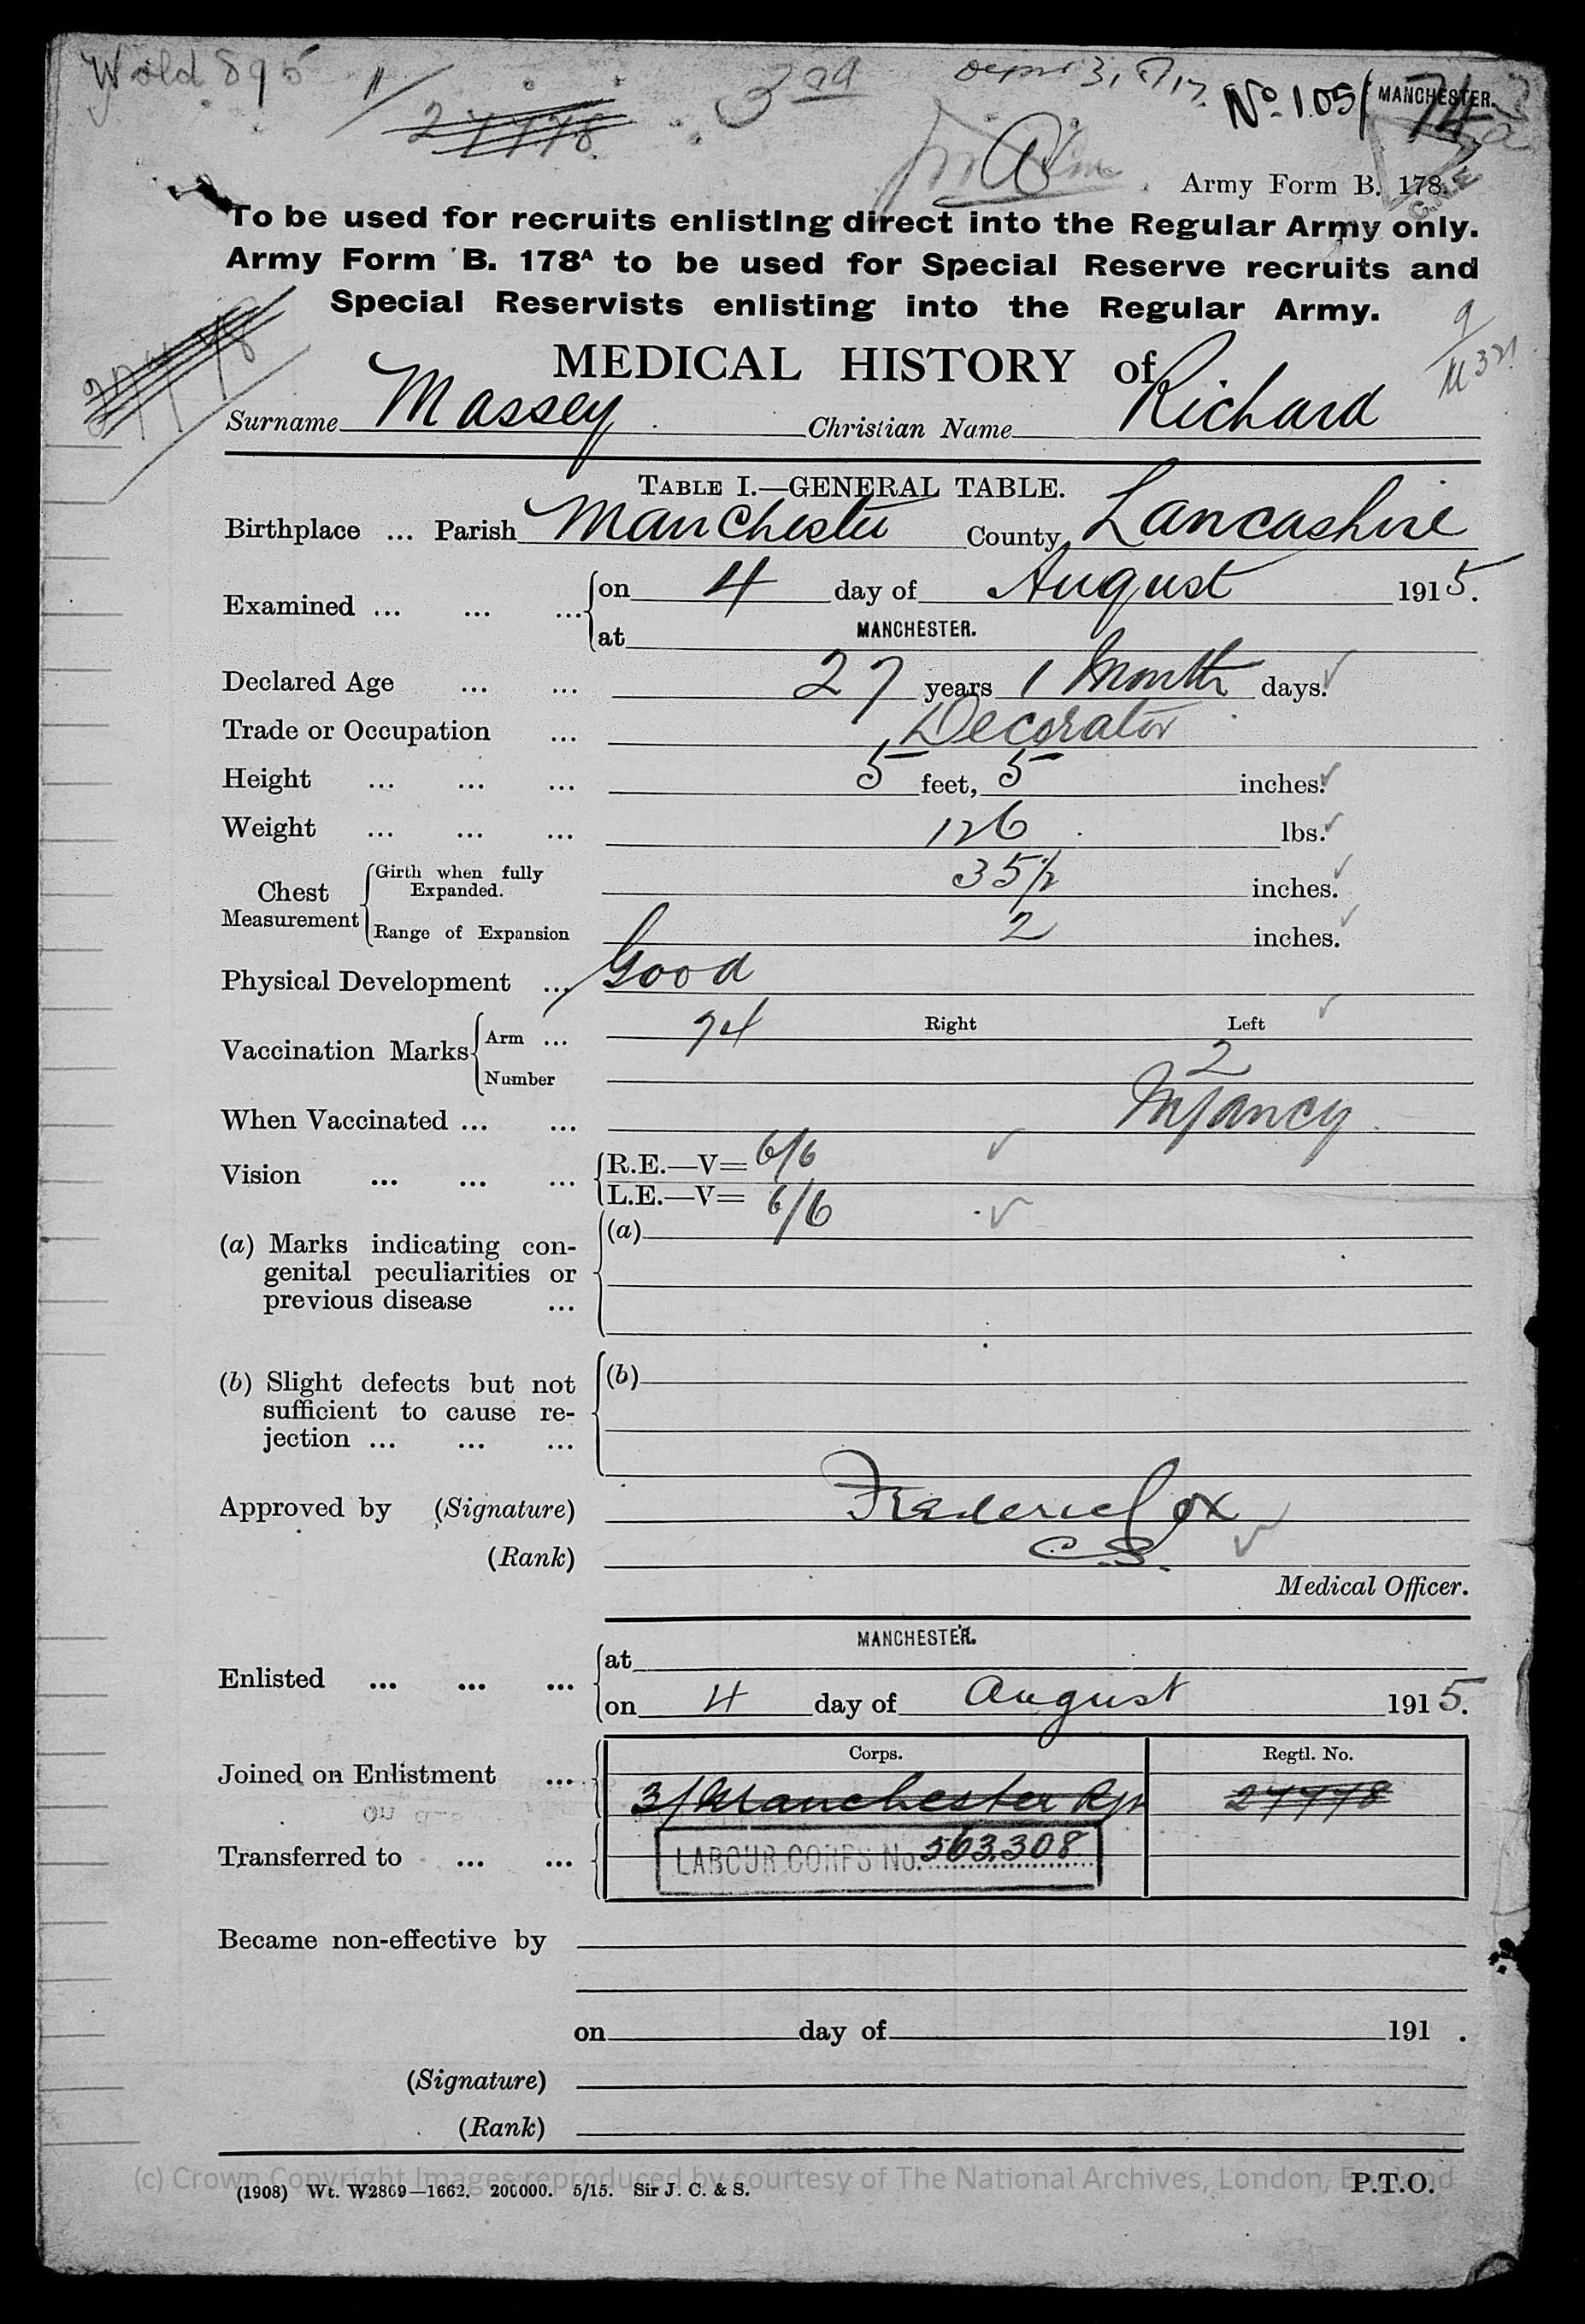 Wold 895
1/
27778
3rd
No. 105/ MANCHESTER. 74
Army Form B. 178.
To be used for recruits enlisting direct into the Regular Army only.
Army Form B. 178A to be used for Special Reserve recruits and
Special Reservists enlisting into the Regular Army.
MEDICAL HISTORY of
Surname Massey Christian Name Richard
TABLE I.—GENERAL TABLE.
Birthplace ... Parish Manchester County Lancashire
Examined ... ... ... on 4 day of August 1915.
at MANCHESTER.
Declared Age ... ... 27 years 1 Month days.
Trade or Occupation ... Decorator
Height ... ... ... 5 feet, 5 inches.
Weight ... ... ... 126 lbs.
Chest Measurement Girth when fully Expanded. 35 1/2 inches.
Range of Expansion 2 inches.
Physical Development ... Good
Vaccination Marks Arm ... Right Left
Number 2
When Vaccinated ... ... Infancy
Vision ... ... ... R.E.—V= 6/6
L.E.—V= 6/6
(a) Marks indicating con- (a)
genital peculiarities or
previous disease ...
(b) Slight defects but not (b)
sufficient to cause re-
jection ... ... ...
Approved by (Signature) Frederic Cox
(Rank) C.S.
Medical Officer.
Enlisted ... ... ... at MANCHESTER.
on 4 day of August 1915.
Corps. Regtl. No.
Joined on Enlistment ... 3/Manchester Rgt 27778
Transferred to ... ... LABOUR CORPS No. 563308
Became non-effective by
on day of 191 .
(Signature)
(Rank)
(c) Crown Copyright Images reproduced by courtesy of The National Archives, London, England
(1908) Wt. W2869—1662. 200000. 5/15. Sir J. C. & S. P.T.O.